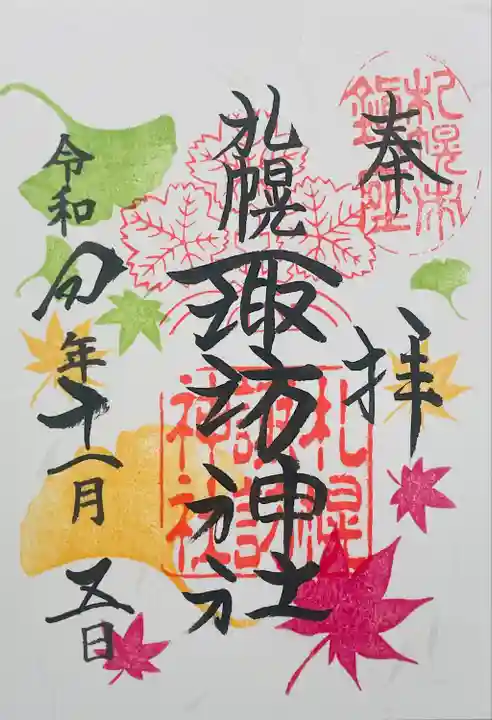 奉拝
札幌諏訪神社
札幌
諏訪
神社
令和四年十一月五日